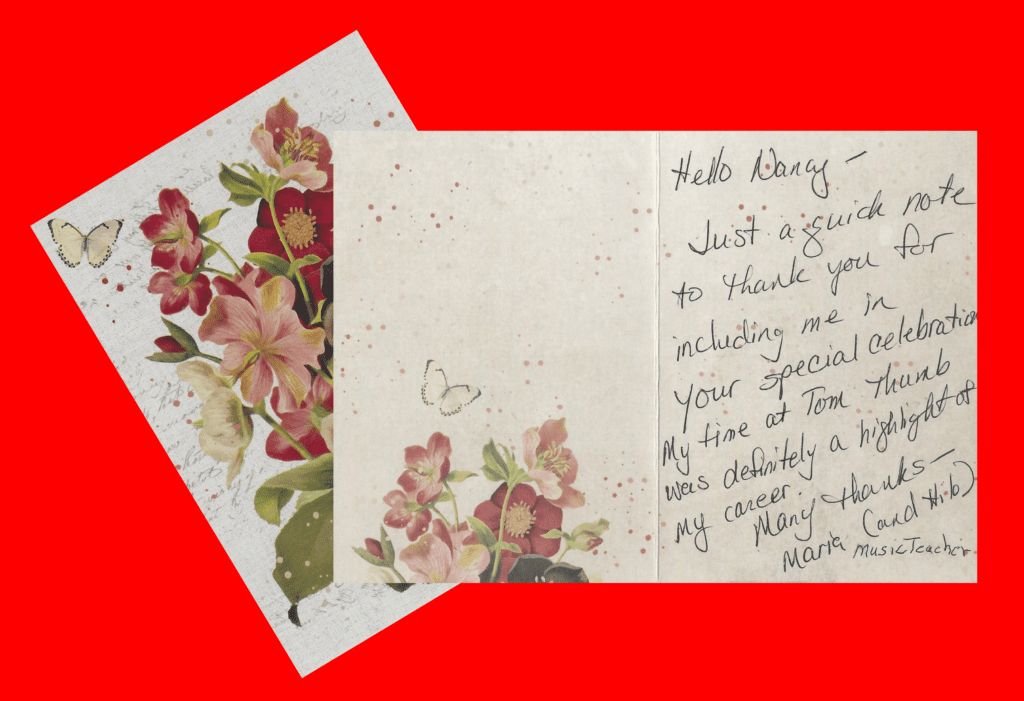 Hello Nancy –
Just a quick note
to thank you for
including me in
your special celebration
My time at Tom Thumb
was definitely a highlight of
my career.
Many thanks –
Maria (and Hilo)
Music Teacher